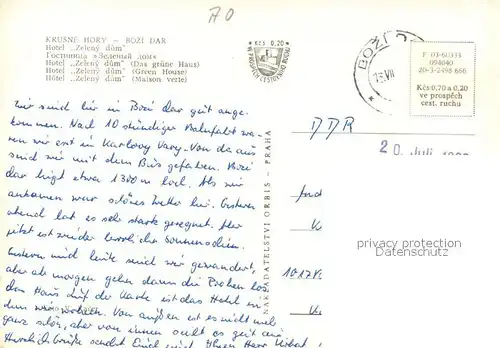 AO
KRUŠNÉ HORY – BOŽÍ DAR
Hotel „Zelený dům"
Гостиница «Зеленый дом»
Hotel „Zelený dům" (Das grüne Haus)
Hotel „Zelený dům" (Green House)
Hôtel „Zelený dům" (Maison verte)
Kčs 0,20
BOŽÍ D
15.VII
F 03-60333
094040
20-3-2498 666
Kčs 0,70 a 0,20
ve prospěch
cest. ruchu
Wir sind hier in Bozi dar gut ange-
kommen. Nach 10 stündiger Bahnfahrt wa-
ren wir erst in Karlovy Vary. Von da aus
sind wir mit dem Bus gefahren. Bozi
dar liegt etwa 1300 m hoch. Als wir
ankamen war schönes Wetter hier. Gestern
abend hat es sehr stark geregnet. Aber
jetzt ist wieder herrlicher Sonnenschein.
Gestern und heute sind wir gewandert,
aber ab morgen gehen dann die Proben los.
Das Haus auf der Karte ist das Hotel in
dem wir wohnen. Von außen ist es nicht
ganz schön, aber von innen sieht es gut aus
Herzliche Grüße sendet Euch und Ihnen Herr
DDR
20. Juli
1017
NAKLADATELSTVÍ ORBIS – PRAHA
privacy protection
Datenschutz